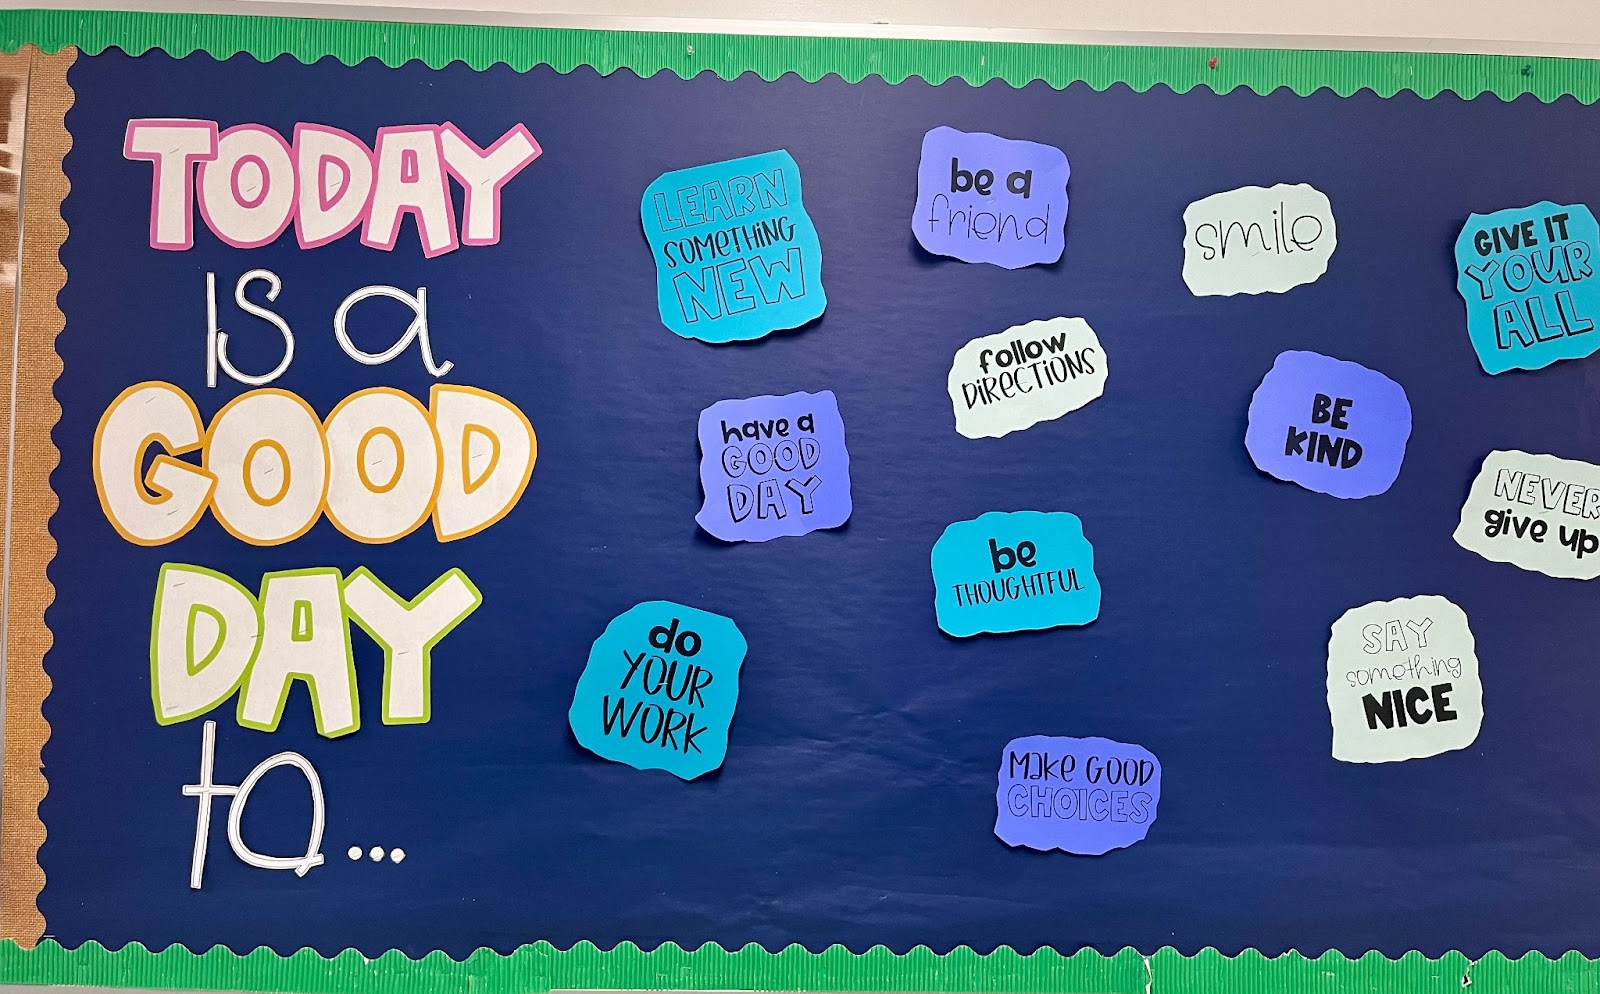 TODAY
is a
GOOD
DAY
to...
LEARN
SOMETHING
NEW
be a
friend
smile
GIVE IT
YOUR
ALL
follow
DIRECTIONS
have a
GOOD
DAY
BE
KIND
NEVER
give up
be
THOUGHTFUL
do
YOUR
WORK
SAY
something
NICE
MAKE GOOD
CHOICES